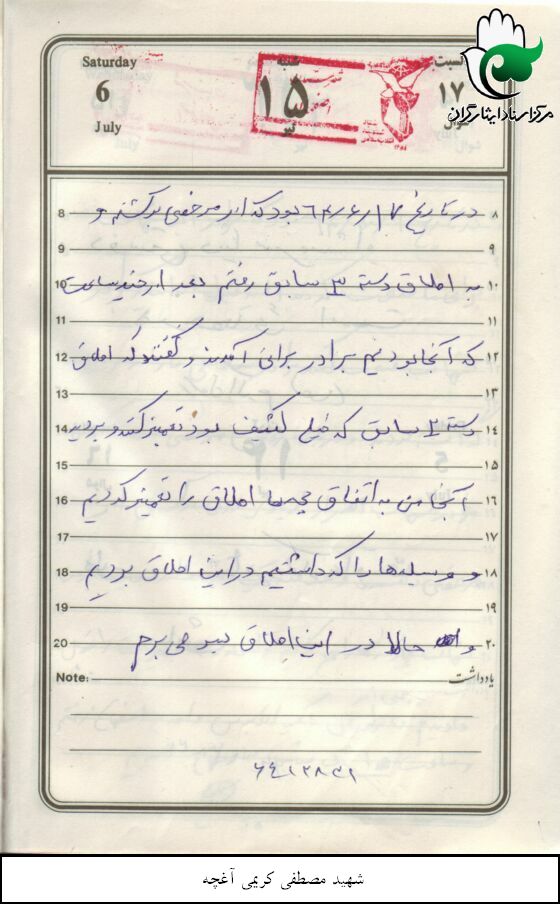 Saturday
6
July
شنبه
۱۵
تیر
السبت
۱۷
شوال
مرکز اسناد ایثارگران
8 در تاریخ ۶۴/۶/۱۷ بود که از مرخصی برگشتم و ۸
9 ۹
10 به اطاق دسته ۳ سابق رفتم بعد از چند ساعت ۱۰
11 ۱۱
12 که آنجا بودیم برادر برای آمدند و گفتند که اطاق ۱۲
13 ۱۳
14 دسته ۲ سابق که خیلی کثیف بود تمیز کنید و بروید ۱۴
15 ۱۵
16 آنجا من به اتفاق بچه ها اطاق را تمیز کردیم ۱۶
17 ۱۷
18 و وسیله ها را گذاشتیم در این اطاق بودیم ۱۸
19 ۱۹
20 و حالا در این اطاق بسر می برم ۲۰
Note: یادداشت
شهید مصطفی کریمی آغچه